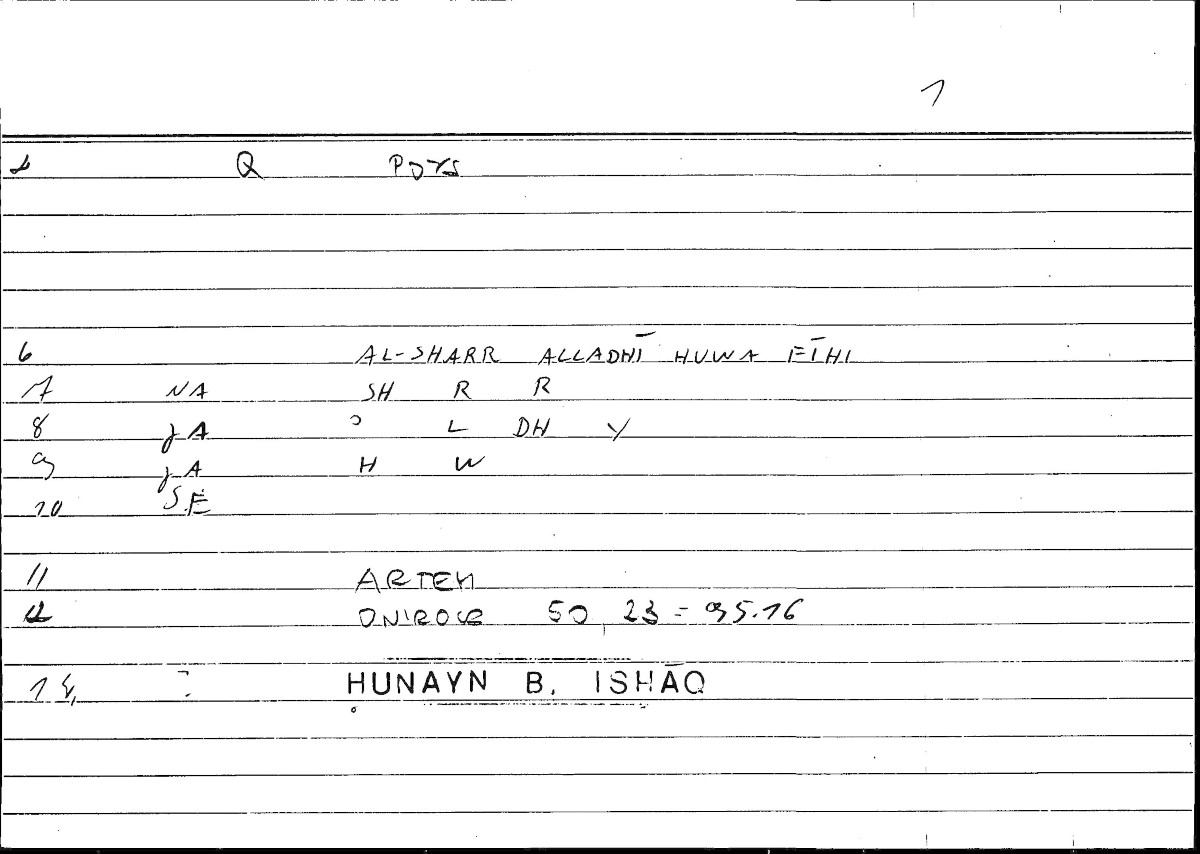 1
1 Q PDYS
6 AL-SHARR ALLADHĪ HUWA FĪHI
7 NA SH R R
8 JA ɔ L DH Y
9 JA H W
10 SE
11 ARTEM
12 ONIROCR 50, 23 = 95.16
HUNAYN B. ISHĀQ